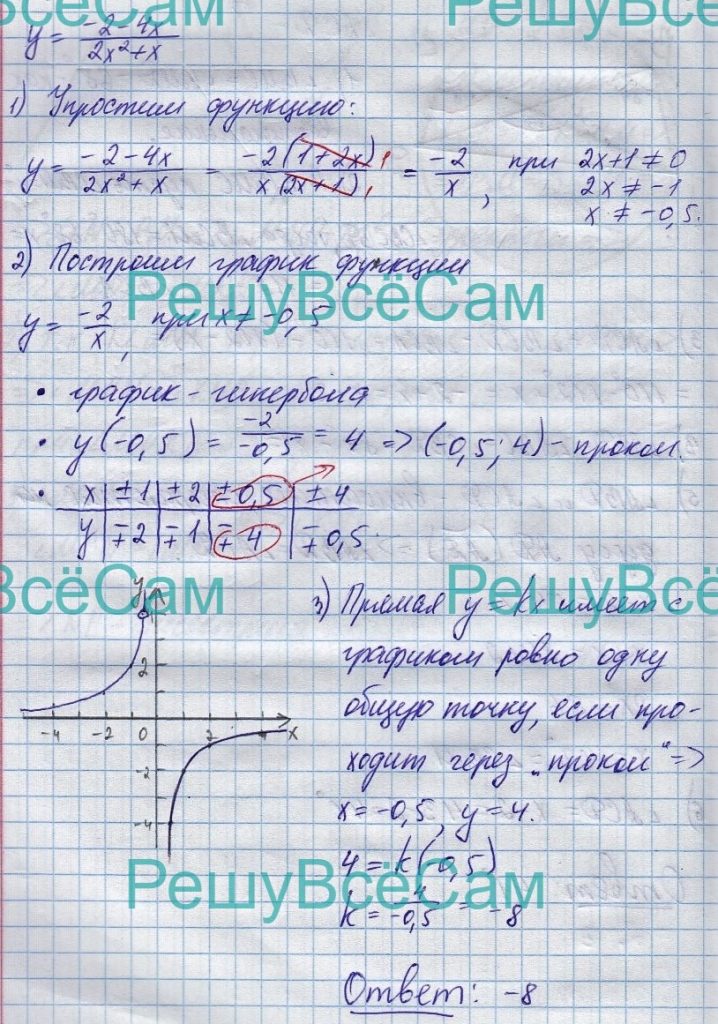 РешуВсёСам
РешуВсёСам
y = (-2-4x)/(2x²+x)
1) Упростим функцию:
y = (-2-4x)/(2x²+x) = (-2(1+2x)¹)/(x(2x+1)₁) = -2/x, при 2x+1≠0
2x≠-1
x≠-0,5.
2) Построим график функции
РешуВсёСам
y = -2/x, при x≠-0,5
• график - гипербола
• y(-0,5) = -2/-0,5 = 4 => (-0,5; 4) - прокол.
• x | ±1 | ±2 | ±0,5 | ±4
y | ∓2 | ∓1 | ∓4 | ∓0,5.
РешуВсёСам
РешуВсёСам
y
2
-4 -2 0 2 4 x
-2
-4
3) Прямая y=kx имеет с
графиком ровно одну
общую точку, если про-
ходит через „прокол" =>
x=-0,5, y=4.
4=k(-0,5)
РешуВсёСам
k = 4/-0,5 = -8
Ответ: -8